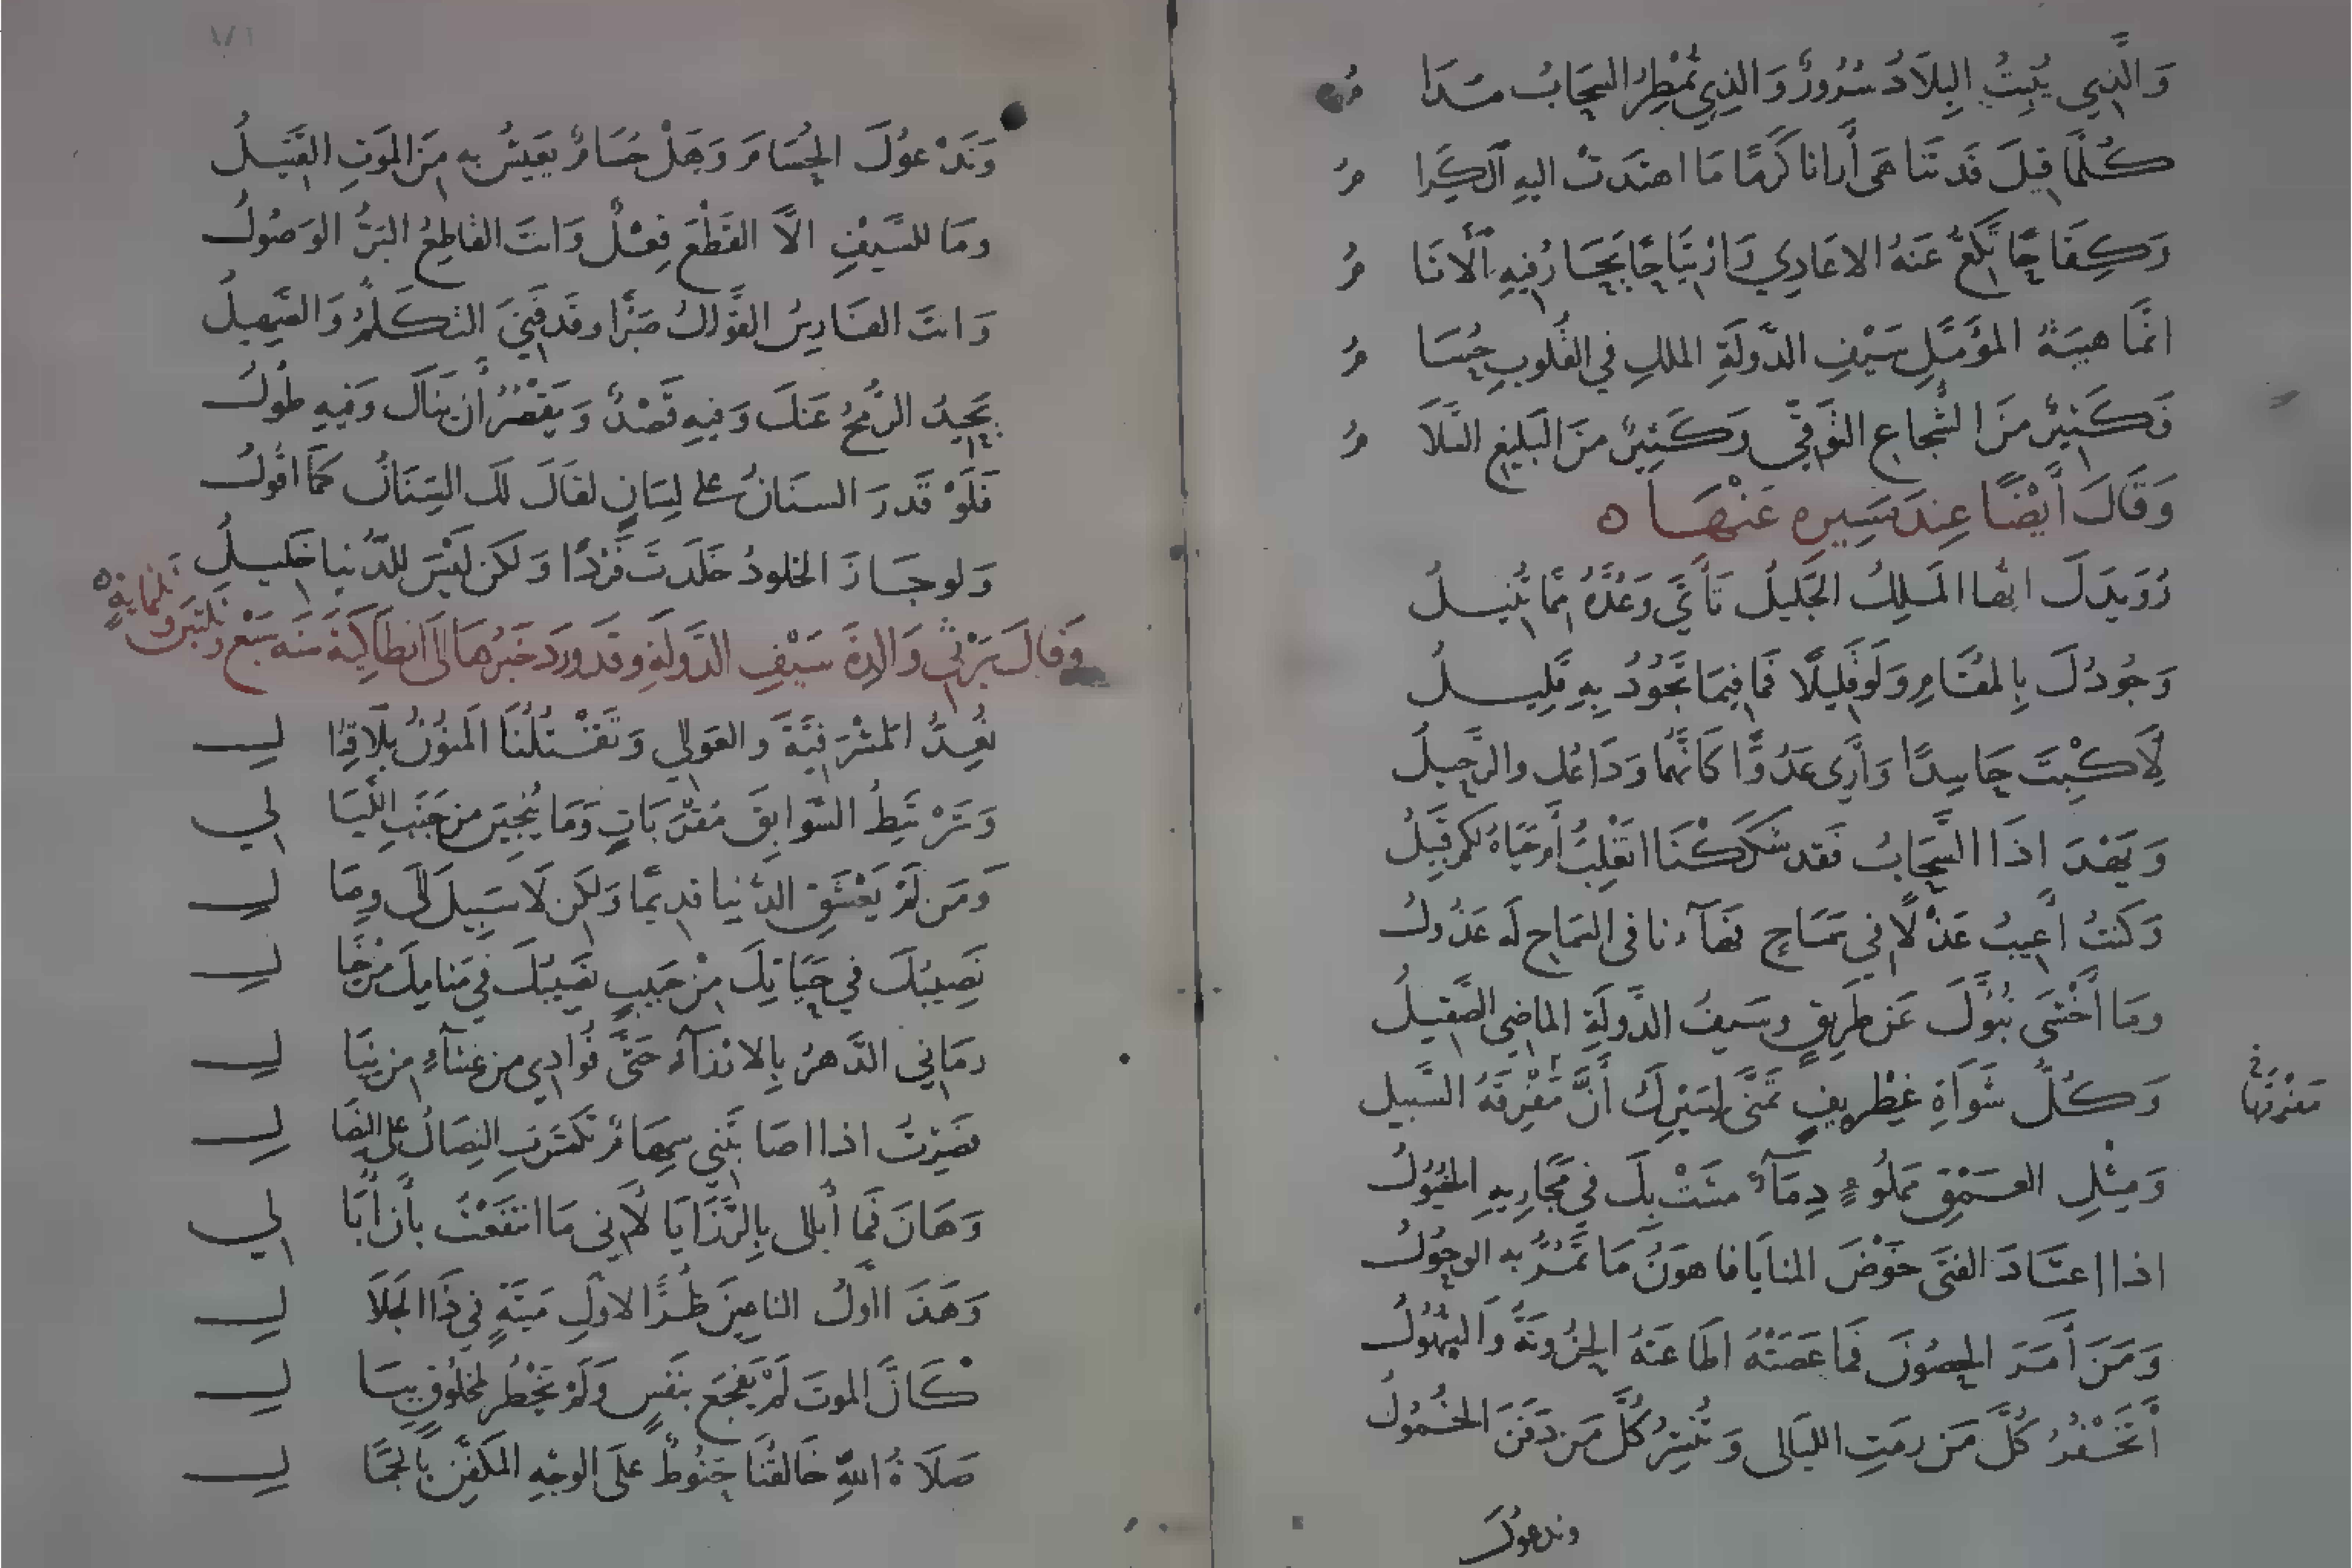 وَالَّذِي يُنْبِتُ الْبِلَادُ سُرُورٌ وَالَّذِي تُمْطِرُ السَّحَابُ مُدَا مُ
كُلَّمَا قِيلَ قَدْ تَنَاهَى أَرَانَا كَرَمًا مَا اهْتَدَتْ اليهِ الْكِرَا مُ
وَكِفَاحًا تَكِعُّ عَنْهُ الاعَادِي وَارْتِيَاحًا يَحَارُ فِيهِ الْأَنَا مُ
انَّمَا هَيْبَةُ الْمُؤَمَّلِ سَيْفِ الدَّوْلَةِ الملكِ فِي الْقُلُوبِ حُسَا مُ
فَكَثِيرٌ مِنَ الشُّجَاعِ التَّوَقِّي وَكَثِيرٌ مِنَ الْبَلِيغِ السَّلَا مُ
وَقَالَ أَيْضًا عِنْدَ مَسِيرِهِ عَنْهَا ه
رُوَيْدَكَ ايُّهَا الْمَلِكُ الْجَلِيلُ تَأَيَّ وَعُدَّهُ مِمَّا تُنِيلُ
وَجُودَكَ بِالْمُقَامِ وَلَوْ قَلِيلًا فَمَا فِيمَا تَجُودُ بِهِ قَلِيلُ
لِأَكْبِتَ حَاسِدًا وَأَرَى عَدُوًّا كَأَنَّهُمَا وَدَاعُكَ والرَّحِيلُ
وَيَهْدَأَ ذَا السَّحَابُ فَقَدْ شَكَكْنَا اتَغْلِبُ أَمْ حَيَاهُ لَكُمْ قَبِيلُ
وَكُنْتُ أَعِيبُ عَذْلًا فِي سَمَاحٍ فَهَاأَنَا فى السَّمَاحِ لَهُ عَذُولُ
وَمَا أَخْشَى نُبُوَّكَ عَنْ طَرِيقٍ وسَيْفُ الدَّوْلَةِ الْمَاضِي الصَّقِيلُ
وَكُلُّ شَوَاةِ غِطْرِيفٍ تَمَنَّى لِسَيْرِكَ أَنَّ مَفْرِقَهُ السَّبِيلُ
مَفْرِقَهَا
وَمِثْلِ الْعَمْقِ مَمْلُوءٍ دِمَاءً مَشَتْ بِكَ فى مَجَارِيهِ الْخُيُولُ
اذا اعتَادَ الفتَى خَوْضَ المنايَا فاهوَنُ مَا تَمُرُّ به الوحُولُ
وَمَنْ أَمَرَ الْحُصُونَ فَمَا عَصَتْهُ اطَاعَتْهُ الْحُزُونَةُ وَالسُّهُولُ
أَتَخْفُرُ كُلَّ مَنْ رمَتِ اللَّيَالى وَتُنْشِرُ كُلَّ مَنْ دَفَنَ الْخُمُولُ
وندعوك
وَنَدْعُوكَ الْحُسَامَ وَهَلْ حُسَامٌ يَعِيشُ بِهِ مِنَ الْمَوْتِ الْقَتِيلُ
ومَا للسَّيْفِ الَّا الْقَطْعَ فِعْلٌ وَانْتَ القَاطِعُ الْبَرُّ الوَصُولُ
وَانتَ الفَارِسُ القَوَّالُ صَبْرًا وقَدْ فَنِيَ التَّكَلُّمُ وَالصَّهِيلُ
يَحِيدُ الرُّمْحُ عَنْكَ وَفِيهِ قَصْدٌ وَيَقْصُرُ أَنْ يَنَالَ وَفِيهِ طُولُ
فَلَوْ قَدَرَ السِّنَانُ عَلَى لِسَانٍ لَقَالَ لَكَ السِّنَانُ كَمَا اقُولُ
وَلَوْ جَازَ الْخُلُودُ خَلَدتَ فَرْدًا وَلَكِن لَيْسَ للدُّنْيَا خَلِيلُ
وَقَالَ يَرْثِي وَالِدَةَ سَيْفِ الدَّوْلَةِ وَقَدْ وَرَدَ خَبَرُهَا الَى انطَاكِيَةَ سَنَةَ سَبْعٍ وثلثينَ وثلثمايةٍ ه
نُعِدُّ الْمَشْرَفِيَّةَ وَالعَوَالِي وَتَقْتُلُنَا الْمَنُونُ بِلَا قِتَا لِ
وَنَرْتَبِطُ السَّوَابِقَ مُقْرَبَاتٍ وَمَا يُنْجِينَ مِنْ خَبَبِ اللَّيَا لِي
وَمَنْ لَمْ يَعْشَقِ الدُّنْيَا قَدِيمًا وَلَكِن لَا سَبِيلَ الَى وِصَا لِ
نَصِيبُكَ فِي حَيَاتِكَ مِنْ حَبِيبٍ نَصِيبُكَ فِي مَنَامِكَ مِنْ خَيَا لِ
رمَانِي الدَّهْرُ بِالارْزَاءِ حَتَّى فُؤَادِي مِنْ غِشَاءٍ مِن نِبَا لِ
فَصِرْتُ اذا اصَابَتْنِي سِهَامٌ تَكَسَّرَتِ النِّصَالُ عَلَى النِّصَا لِ
وَهَانَ فَمَا أُبَالى بِالرَّزَايَا لِأَنِّى مَا انْتَفَعْتُ بِأَنْ أُبَا لِي
وَهَذَا اوَّلُ النَّاعِينَ طُرًّا لِاوَّلِ مَيْتَةٍ فِي ذَا الْجَلَا لِ
كَأَنَّ الموتَ لَمْ يَفْجَعْ بِنَفْسٍ وَلَمْ يَخْطُرْ لِمَخْلُوقٍ بِبَا لِ
صَلَاةُ اللَّهِ خَالِقِنَا حَنُوطٌ عَلَى الوجْهِ الْمُكَفَّنِ بِالْجَمَا لِ